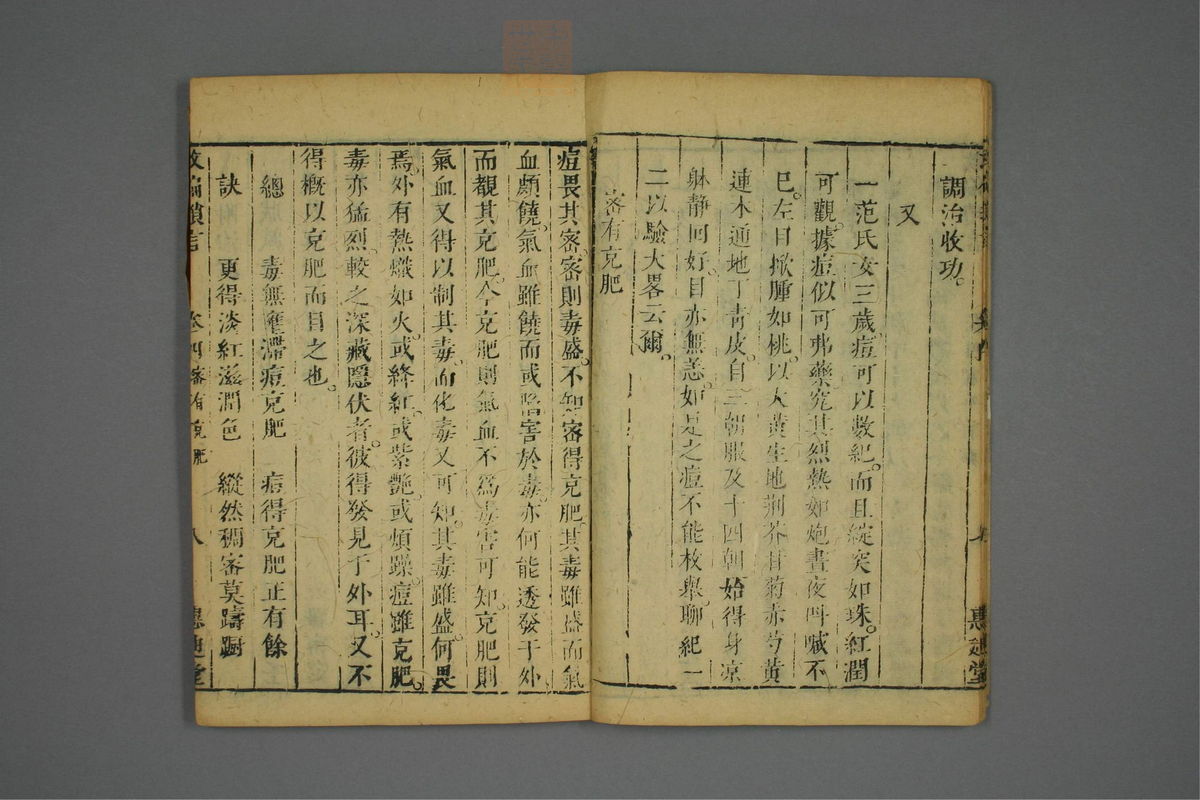 調治收功。
又
一范氏女三歲。痘可以數紀。而且綻突如珠。紅潤
可觀。據痘似可弗藥。究其烈熱如炮。晝夜呌喊不
已。左目掀腫如桃。以大黃生地荆芥甘菊赤芍黃
連木通地丁青皮。自三朝服及十四朝。始得身凉
躰静回好。目亦無恙。如是之痘不能枚舉。聊紀一
二以驗大畧云爾。
密有克肥
痘畏其密。密則毒盛。不知密得克肥。其毒雖盛而氣
血頗饒。氣血雖饒而或陷害於毒。亦何能透發于外
而覩其克肥。今克肥則氣血不爲毒害可知。克肥則
氣血又得以制其毒。而化毒又可知。其毒雖盛。何畏
焉。外有熱熾如火。或絳紅。或紫艷。或煩躁。痘雖克肥。
毒亦猛烈。較之深藏隱伏者。彼得發見于外耳。又不
得概以克肥而目之也。
總 毒無壅滯痘克肥 痘得克肥正有餘
訣 更得淡紅滋潤色 縱然稠密莫躊蹰
救偏瑣言 卷四密有克肥 八 惠迪堂